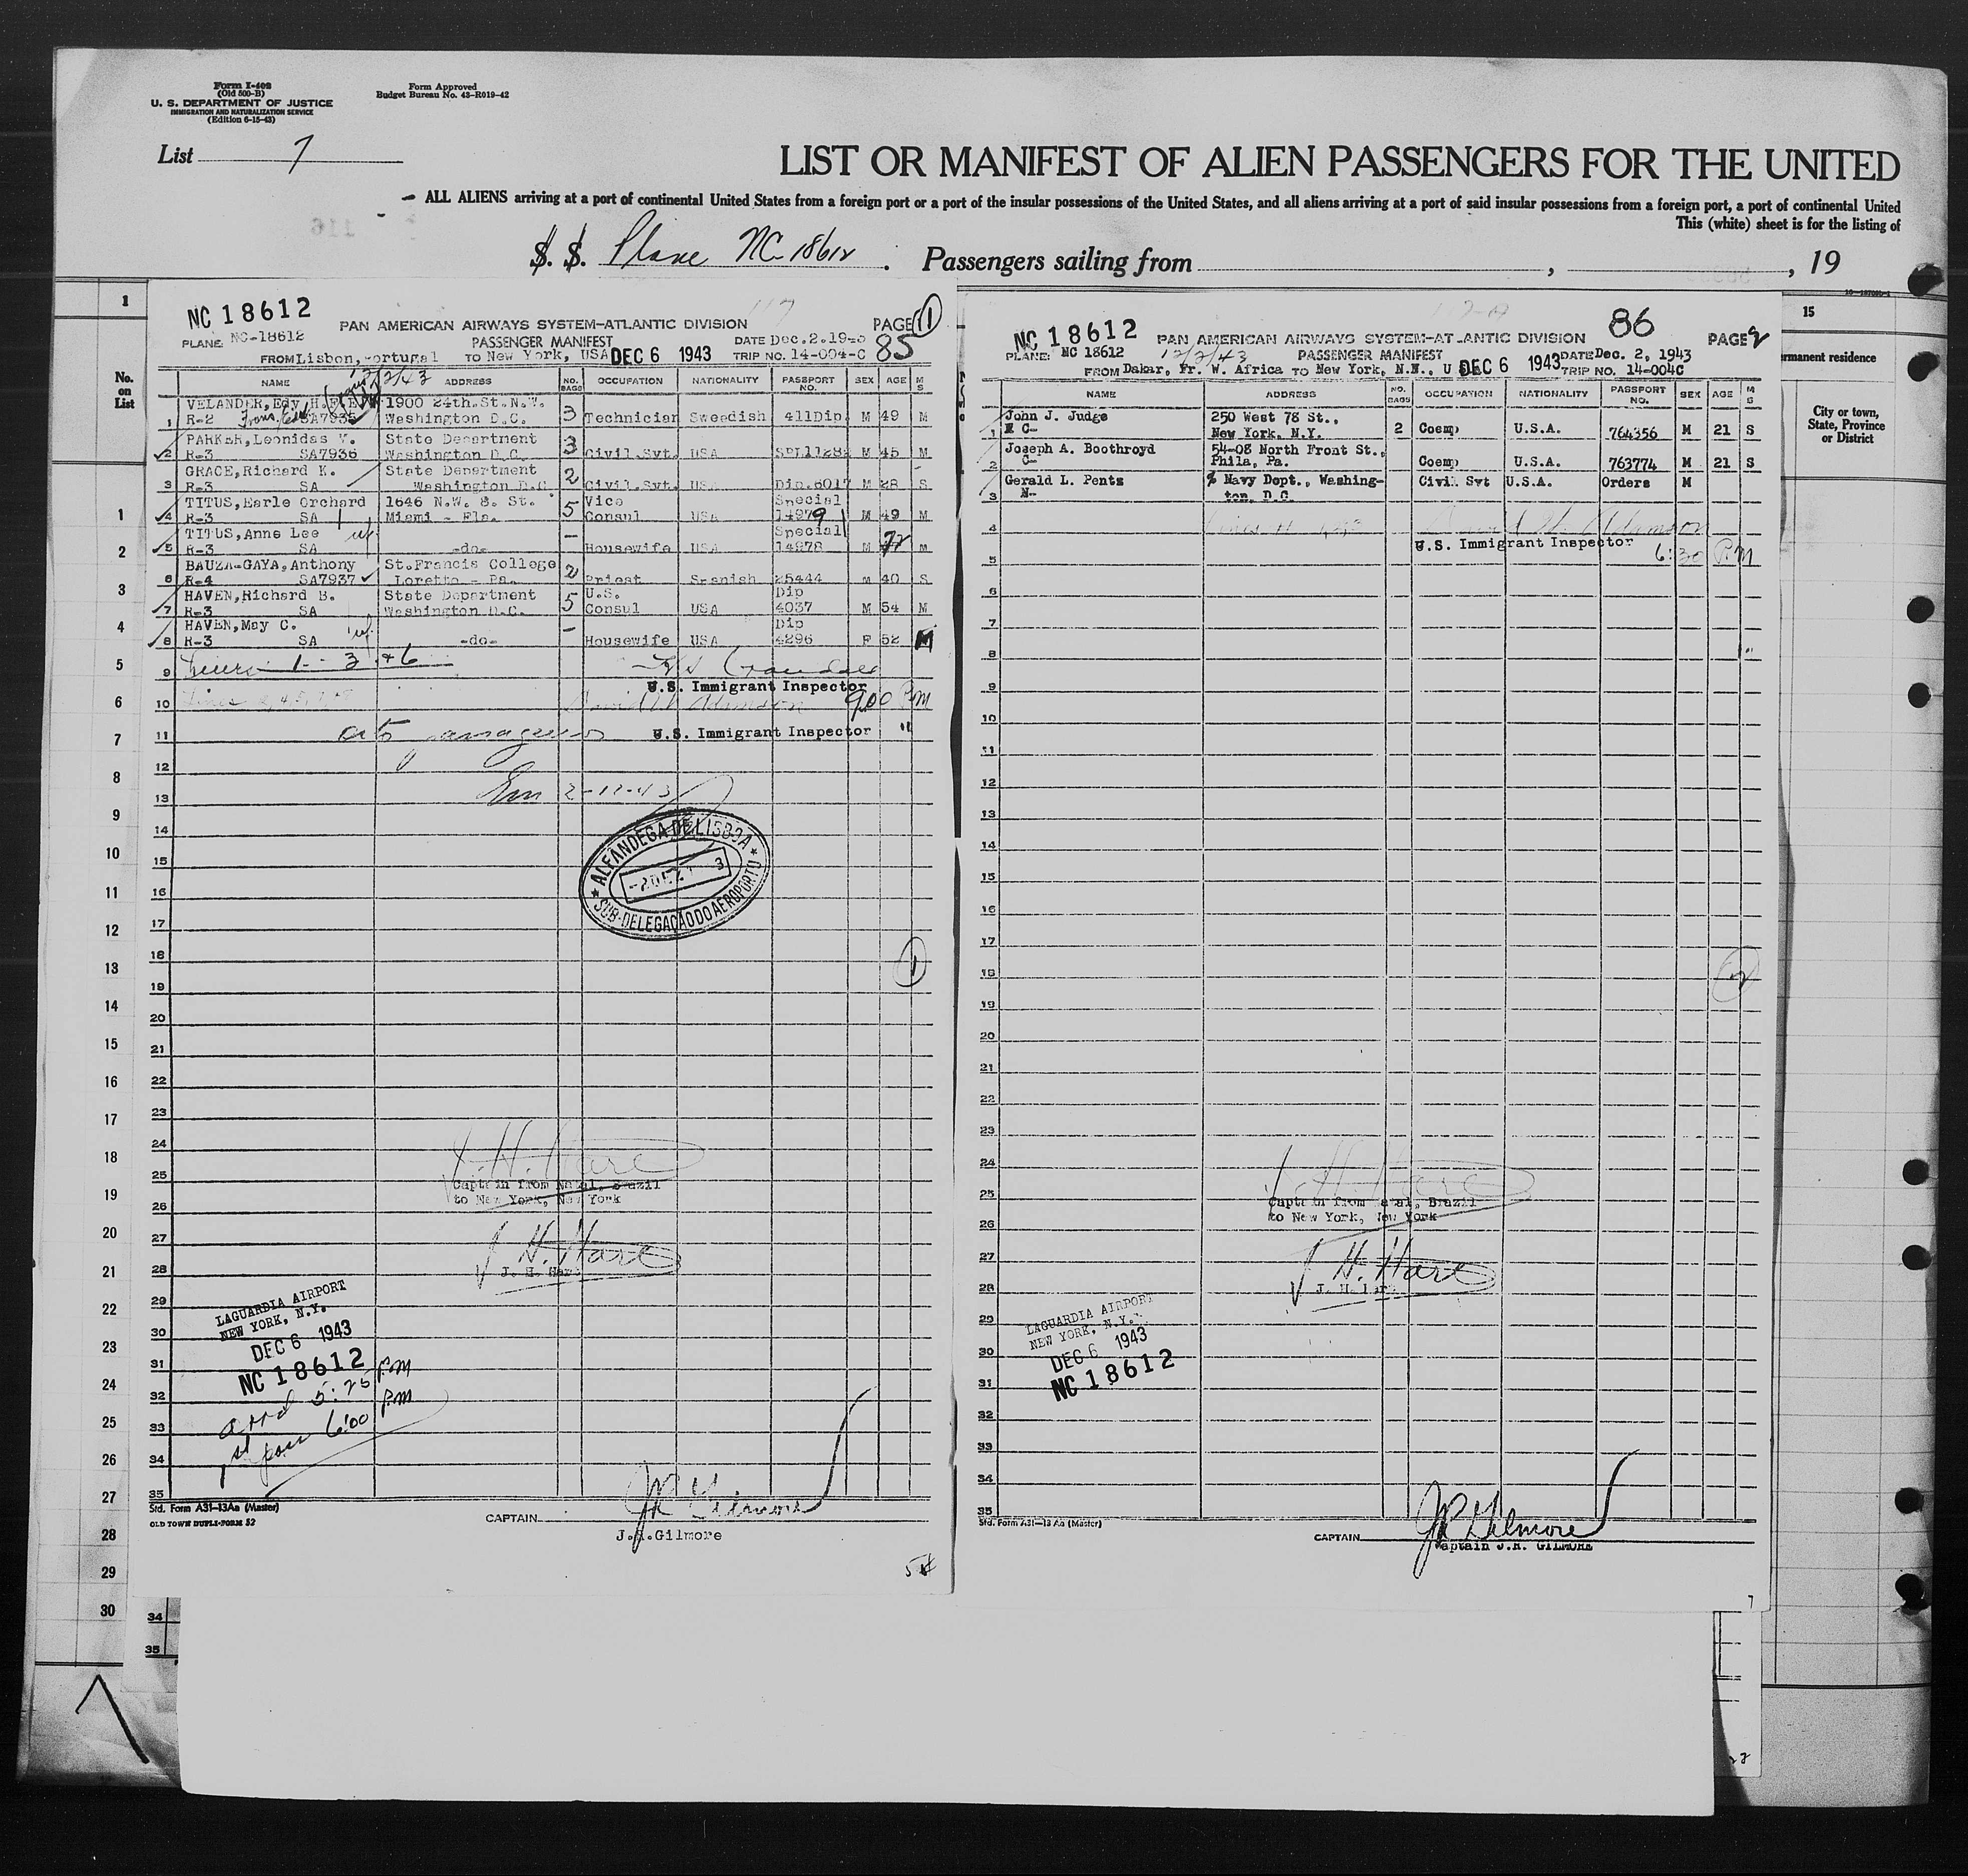 Form I-402
(Old 500-B)
U. S. DEPARTMENT OF JUSTICE
IMMIGRATION AND NATURALIZATION SERVICE
(Edition 6-15-43)
Form Approved
Budget Bureau No. 43-R019-42
List 7
LIST OR MANIFEST OF ALIEN PASSENGERS FOR THE UNITED
ALL ALIENS arriving at a port of continental United States from a foreign port or a port of the insular possessions of the United States, and all aliens arriving at a port of said insular possessions from a foreign port, a port of continental United
This (white) sheet is for the listing of
S. S. Plane NC 18612 . Passengers sailing from , , 19
NC 18612
PAN AMERICAN AIRWAYS SYSTEM-ATLANTIC DIVISION PAGE 1
PLANE NC-18612 PASSENGER MANIFEST DATE Dec.2.194
FROM Lisbon, Portugal TO New York, USA DEC 6 1943 TRIP NO. 14-004-C 85
12/2/43
NAME ADDRESS NO. BAGS OCCUPATION NATIONALITY PASSPORT NO. SEX AGE M S
VELANDER, Edy H. 1900 24th.St.N.W.
1 R-2 SA7935 Washington D.C. 3 Technician Swedish 411Dip M 49 M
PARKER, Leonidas State Department
2 R-3 SA7936 Washington D.C. 3 Civil.Svt. USA M 45 M
GRACE, Richard K. State Department
3 R-3 SA Washington D.C 2 Civil.Svt. USA Dip.6017 M 28 S
TITUS, Earle Orchard 1646 N.W. 8. St. Vice Special
4 R-3 SA Miami - Fla. 5 Consul USA 14979 M 49 M
TITUS, Anne Lee Special
5 R-3 SA -do- - Housewife USA 14978 M M
BAUZA-GAYA, Anthony St.Francis College
6 R-4 SA7937 Loretto - Pa. 2 Priest Spanish 25444 M 40 S
HAVEN, Richard B. State Department U.S. Dip
7 R-3 SA Washington D.C. 5 Consul USA 4037 M 54 M
HAVEN, May C. Dip
8 R-3 SA -do- - Housewife USA 4296 F 52 M
9 1 - 3 + 6
U.S. Immigrant Inspector
10 David W Adamson 9:00 PM
11 U.S. Immigrant Inspector "
12
13 Em 2-12-43
14
15
16
17
18
19
20
21
22
23
24
25
26
27
28
29
30
31
32
33
34
35
ALFANDEGA DE LISBOA
SUB-DELEGAÇÃO DO AEROPORTO
J. H. Hare
Captain from Natal, Brazil
to New York, New York
J. H. Hare
J. H. Hare
LAGUARDIA AIRPORT
NEW YORK, N.Y.
DEC 6 1943
NC 18612
arrd 5:25 P.M
1st pass 6:00 P.M
Std. Form A31-13Aa (Master)
OLD TOWN DUPLI-FORM 52
CAPTAIN JR Gilmore
J.R.Gilmore
NC 18612
PAN AMERICAN AIRWAYS SYSTEM-ATLANTIC DIVISION 86 PAGE 2
PLANE: NC 18612 12/2/43 PASSENGER MANIFEST DATE Dec. 2, 1943
FROM Dakar, Fr. W. Africa TO New York, N.N., U DEC 6 1943 TRIP NO. 14-004C
NAME ADDRESS NO. BAGS OCCUPATION NATIONALITY PASSPORT NO. SEX AGE M S
John J. Judge 250 West 78 St.,
1 New York. N.Y. 2 Coemp U.S.A. 764356 M 21 S
Joseph A. Boothroyd 54-08 North Front St.,
2 C- Phila, Pa. Coemp U.S.A. 763774 M 21 S
Gerald L. Pents % Navy Dept., Washing- Civil Svt U.S.A. Orders M
3 N- ton, D.C.
4 David W. Adamson
U.S. Immigrant Inspector
5 6:30 P.M
6
7
8
9
10
11
12
13
14
15
16
17
18
19
20
21
22
23
24
25
26
27
28
29
30
31
32
33
34
35
J H Hare
Captain from Natal, Brazil
to New York, New York
J. H. Hare
LAGUARDIA AIRPORT
NEW YORK, N.Y.
DEC 6 1943
NC 18612
Std. Form A31-13 Aa (Master)
CAPTAIN JR Gilmore
Captain J.R. GILMORE
1
No.
on
List
1
2
3
4
5
6
7
8
9
10
11
12
13
14
15
16
17
18
19
20
21
22
23
24
25
26
27
28
29
30
34
35
15
rmanent residence
City or town,
State, Province
or District